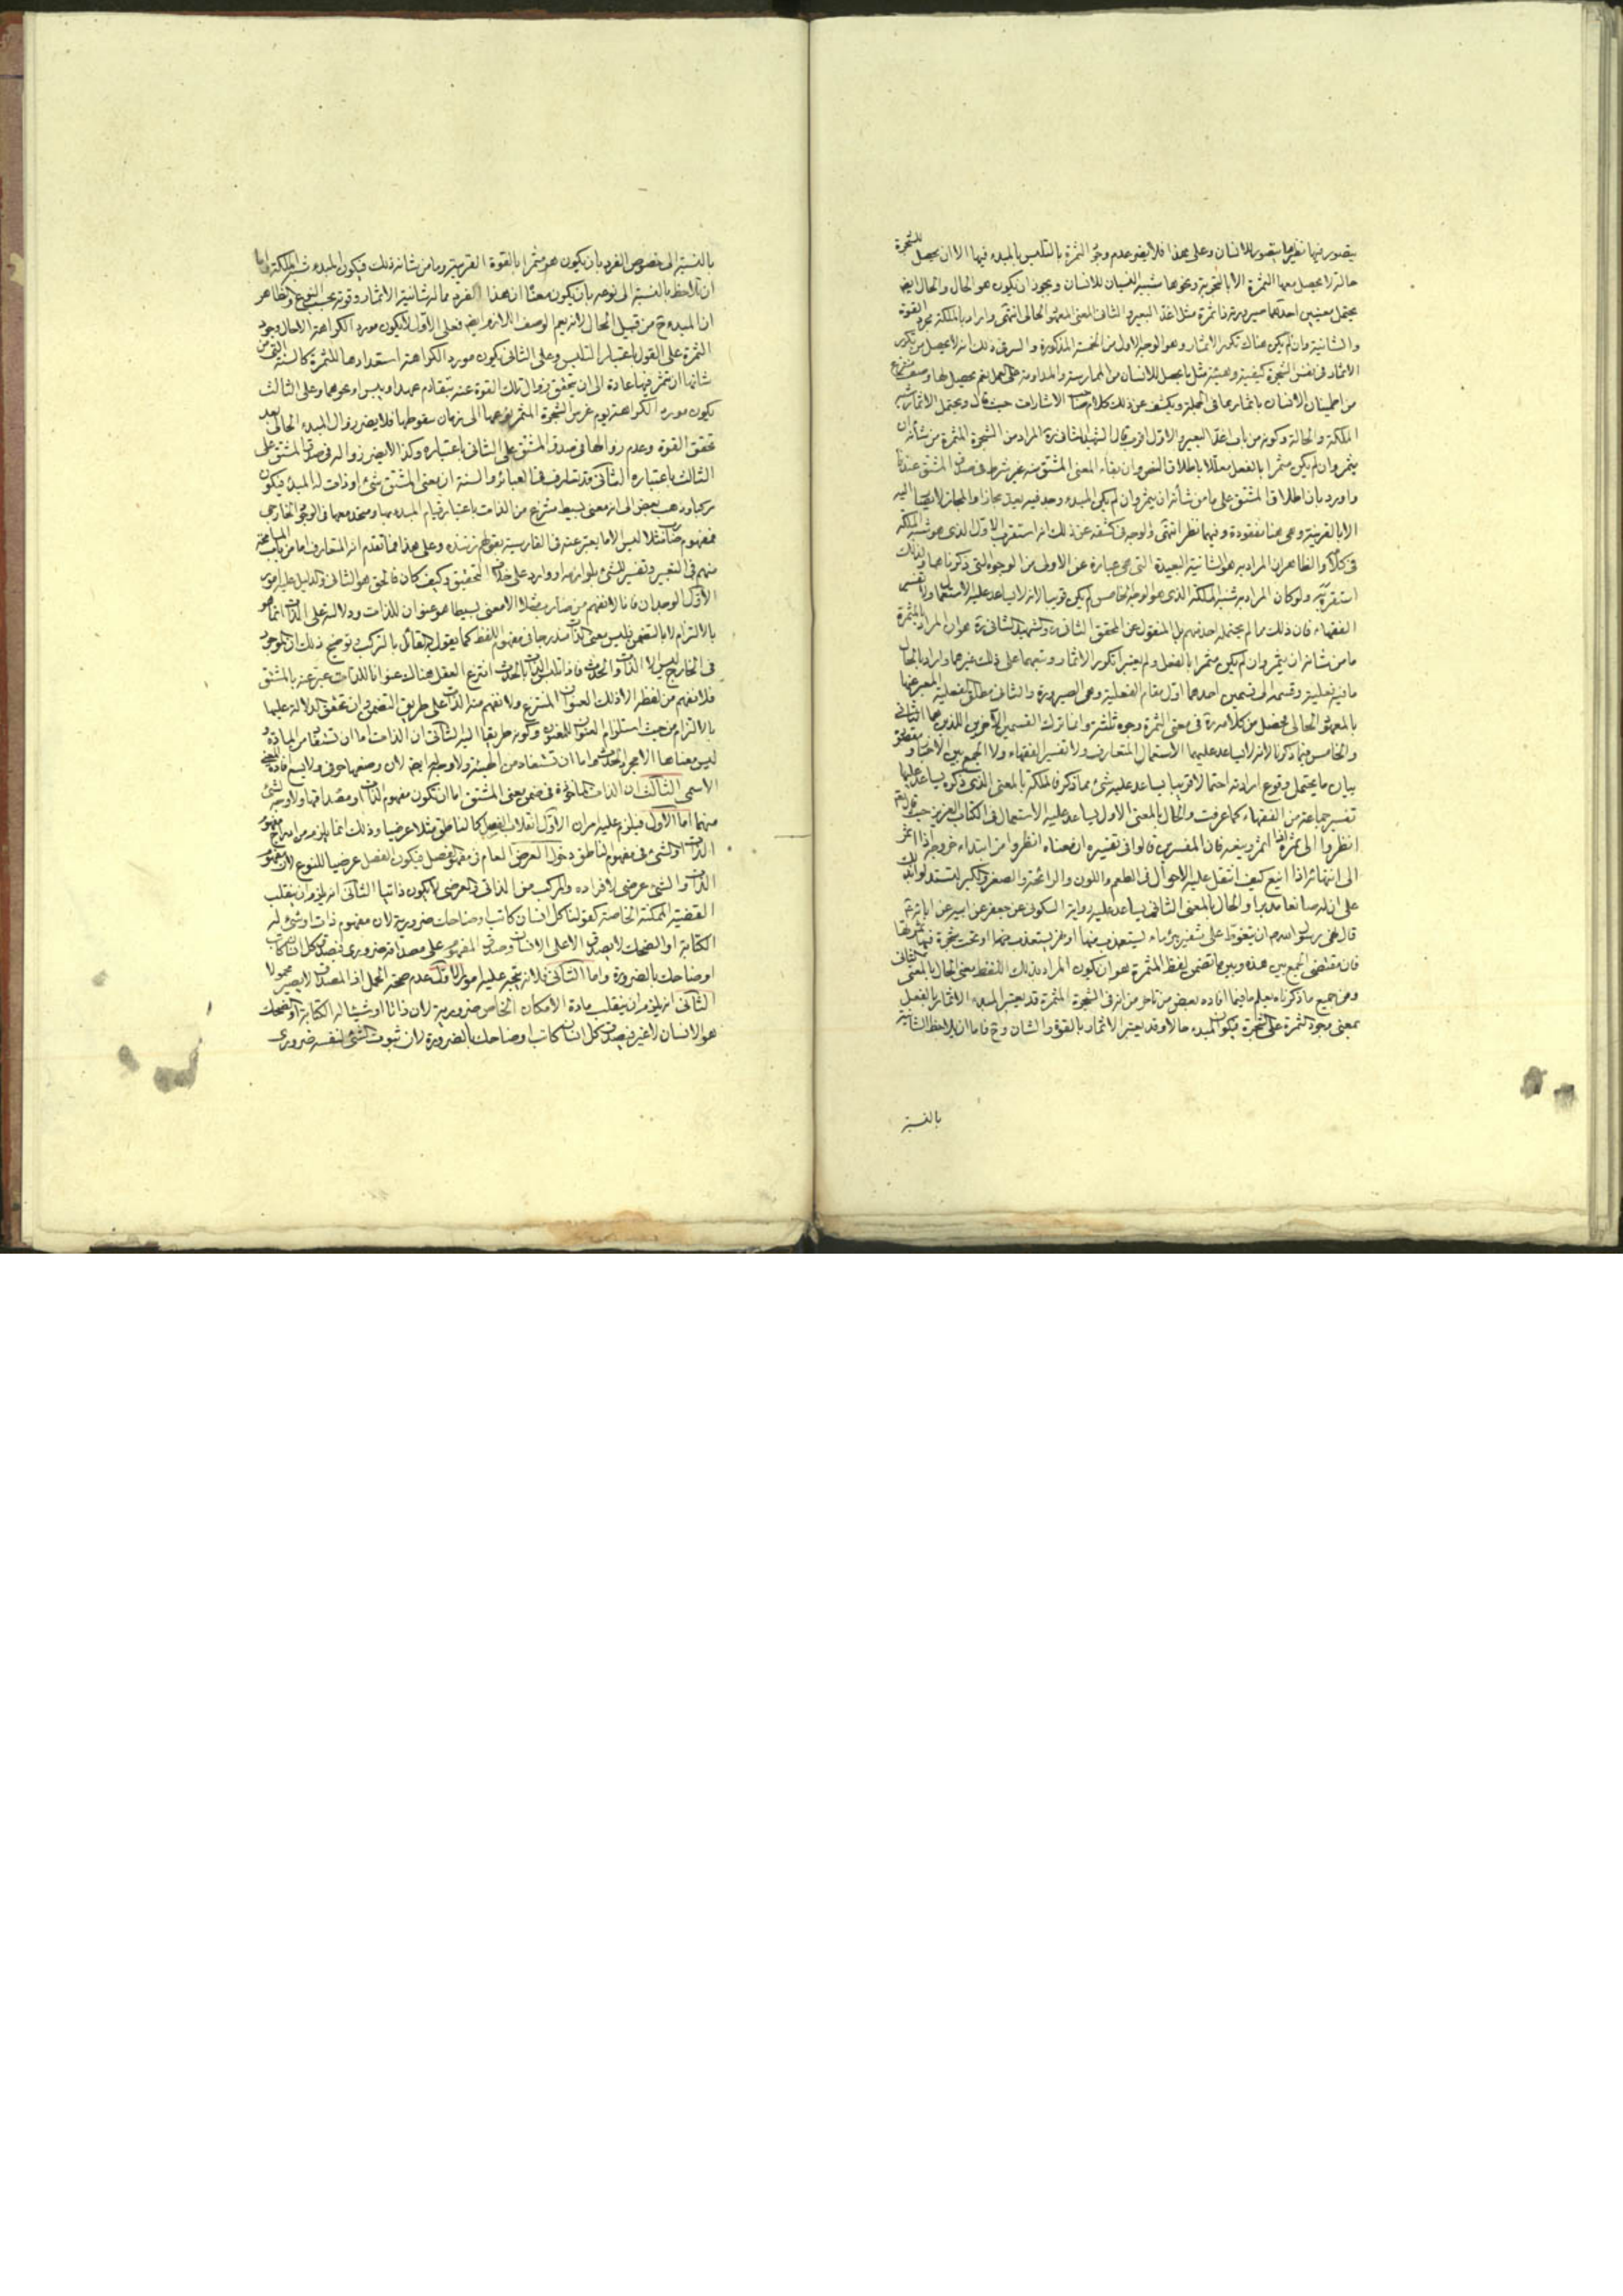 يتصور فيها نظير ما يتصور للانسان وعلى هذا فلا يضر عدم وجود الثمرة بالتلبس بالمبدء فيها الا ان يحصل للشجرة
حالة لا يحصل معها الثمرة الا بالتجربة ونحوها شبيه النسيان للانسان ويجوز ان يكون هو الحال والحال ايضا
يحتمل معنيين احدهما صيرورته ذا ثمرة مثل اغد البعير والثاني المعنى المعهود الحالي انتهى واراد بالملكة مجرد القوة
والشانية وان لم يكن هناك تكرر الاثمار وهو الوجه الاول من الخمسة المذكورة والسر في ذلك انه لا يحصل من تكرر
الاثمار في نفس الشجرة كيفية وهيئة مثل ما يحصل للانسان من الممارسة والمداومة على العمل نعم يحصل لها وصف منتزع
من اطمينان الانسان باثمارها في الجملة ويكشف عن ذلك كلام صاحب الاشارات حيث قال ويحتمل الاثمار شبه
الملكة والحالة وكونه من باب اغد البعير والاول اقرب قال الشهيد الثاني ره المراد من الشجرة المثمرة من شأنه ان
يثمر وان لم يكن مثمرا بالفعل معللا باطلاق النص وان بقاء المعنى المشتق منه غير شرط في صدق المشتق عندنا
واورد بان اطلاق المشتق على ما من شأنه ان يثمر وان لم يكن المبدء وجد فيه بعد مجازا والمجاز لا يصار اليه
الا بالقرينة وهي هنا مفقودة وفيهما نظر انتهى والوجه في كشفه عن ذلك انه استقرب الاول الذي هو شبه الملكة
في كلامه والظاهر ان المراد به هو الشانية البعيدة التي هي عبارة عن الاولى من الوجوه التي ذكرناها ولذلك
استقربه ولو كان المراد به شبه الملكة الذي هو الوجه الخامس لم يكن قريبا لانه لا يساعد عليه الاستعمال ولا تفسير
الفقهاء فان ذلك مما لم يحتمله احد منهم بل المنقول عن المحقق الثاني ره والشهيد الثاني ره هو ان المراد بالمثمرة
ما من شانه ان يثمر وان لم يكن مثمرا بالفعل ولم يعتبرا تكرر الاثمار وتبعهما على ذلك غيرهما واراد بالحال
ما فيه فعلية وقسمه الى قسمين احدهما اول مقام الفعلية وهي الصيرورة والثاني مطلق الفعلية المعبر عنها
بالمعهود الحالي فحصل من كلامه ره في معنى الثمرة وجوه ثلثة وانما ترك القسمين الآخرين اللذين هما الثاني
والخامس فيما ذكرنا لانه لا يساعد عليهما الاستعمال المتعارف ولا تفسير الفقهاء ولا الجمع بين الاخبار ومقصوده
بيان ما يحتمل وقوع ارادته احتمالا قريبا يساعد عليه شيء مما ذكر فالملكة بالمعنى الذي ذكره يساعد عليها
تفسير جماعة من الفقهاء كما عرفت والحال بالمعنى الاول يساعد عليه الاستعمال في الكتاب العزيز حيث قال تعالى
انظروا الى ثمره اذا اثمر وينعه فان المفسرين قالوا في تفسيره ان معناه انظروا من ابتداء خروجه اذا اثمر
الى انتهائه اذا اينع كيف انتقل عليه الاحوال في الطعم واللون والرائحة والصغر والكبر ليستدلوا بذلك
على ان له صانعا مدبرا والحال بالمعنى الثاني يساعد عليه رواية السكوني عن جعفر عن ابيه عن ابائه ع
قال نهى رسول الله ص ان يتغوط على شفير بئر ماء ليستعذب منها او نهر يستعذب منها او تحت شجرة فيها ثمرتها
فان مقتضى الجمع بين هذه وبين ما تضمن لفظ المثمرة هو ان يكون المراد بذلك اللفظ معنى الحال بالمعنى الثاني
ومن جميع ما ذكرناه يعلم ما فيما افاده بعض من تاخر من انه في الشجرة المثمرة قد يعتبر المبدء الاثمار بالفعل
بمعنى وجود الثمرة على الشجرة فيكون المبدء حالا وقد يعتبر الاثمار بالقوة والشان وح فاما ان يلاحظ الشانية
بالنسبة
بالنسبة الى خصوص الفرد بان يكون هو مثمرا بالقوة القريبة وما من شانه ذلك فيكون المبدء شبه الملكة واما
ان تلاحظ بالنسبة الى نوعه بان يكون معناه ان هذا الفرد مما له شانية الاثمار وقوته بحسب النوع والظاهر
ان المبدء ح من قبيل الحال لانه يعم الوصف اللازم ايضا فعلى الاول لا يكون مورد الكراهة الا حال وجود
الثمرة على القول باعتبار التلبس وعلى الثاني يكون مورد الكراهة استعدادها للثمرة كالسنة التي من
شانها ان تثمر فيها عادة الى ان يتحقق زوال تلك القوة عنه بتقادم عهد او يبس او نحوهما وعلى الثالث
يكون مورد الكراهة يوم غرس الشجرة المثمر نوعها الى زمان سقوطها فلا يضر زوال المبدء الحالي بعد
تحقق القوة وعدم زوالها في صدق المشتق على الثاني باعتباره وكذا لا يضر زواله في صدق المشتق على
الثالث باعتباره الثاني قد تعارف في العبائر والسنة ان معنى المشتق شيء او ذات له المبدء فيكون
مركبا وذهب بعض الى انه معنى بسيط منتزع من الذات باعتبار قيام المبدء بها ومتحد معها في الوجود الخارجي
فمفهوم ضارب مثلا ليس الا ما يعبر عنه في الفارسية بقولهم زننده وعلى هذا فما تقدم انه المتعارف اما من باب المسامحة
منهم في التعبير وتفسير للشيء بلوازمه او وارد على خلاف التحقيق وكيف كان فالحق هو الثاني والدليل عليه امور
الاول الوجدان فانا لا نفهم من ضارب مثلا الا معنى بسيطا هو عنوان للذات ودلالته على الذات انما هو
بالالتزام لا بالتضمن فليس معنى الذات مندرجا في مفهوم اللفظ كما يقول به القائل بالتركب توضيح ذلك ان الموجود
في الخارج ليس الا الذات والحدث فاذا تلبس الذات بالحدث انتزع العقل هناك عنوانا للذات عبر عنه بالمشتق
فلا نفهم من لفظه الا ذلك العنوان المنتزع ولا نفهم منه الذات على طريق التضمن وان تحقق الدلالة عليها
بالالتزام من حيث استلزام العنوان للمعنون وكونه طريقا اليه الثاني ان الذات اما ان تستفاد من المادة و
ليس معناها الا مجرد الحدث واما ان تستفاد من الهيئة ولا وجه له ايضا لان وضعها حرفي ولا يسع افادة المعنى
الاسمي الثالث ان الذات الماخوذة في ضمن معنى المشتق اما ان تكون مفهوم الذات او مصداقها ولا وجه لشيء
منهما اما الاول فيلزم عليه امران الاول انقلاب الفصل كالناطق مثلا عرضيا وذلك انما يلزم من اندراج مفهوم
الذات او الشيء في مفهوم الناطق دخول العرض العام في مفهوم الفصل فيكون الفصل عرضيا للنوع لان مفهوم
الذات والشيء عرضي لافراده والمركب من الذاتي والعرضي لا يكون ذاتيا الثاني انه يلزم ان ينقلب
القضية الممكنة الخاصة كقولنا كل انسان كاتب او ضاحك ضرورية لان مفهوم ذات او شيء له
الكتابة او الضحك لا يصدق الا على الانسان وصدق المفهوم على مصداقه ضروري فيصدق كل انسان كاتب
او ضاحك بالضرورة واما الثاني فلانه يتجه عليه امور الاول عدم صحة الحمل اذ المصداق لا يصير محمولا
الثاني انه يلزم ان ينقلب مادة الامكان الخاص ضرورية لان ذاتا او شيئا له الكتابة او الضحك
هو الانسان لا غير فيصدق كل انسان كاتب او ضاحك بالضرورة لان ثبوت الشيء لنفسه ضروري